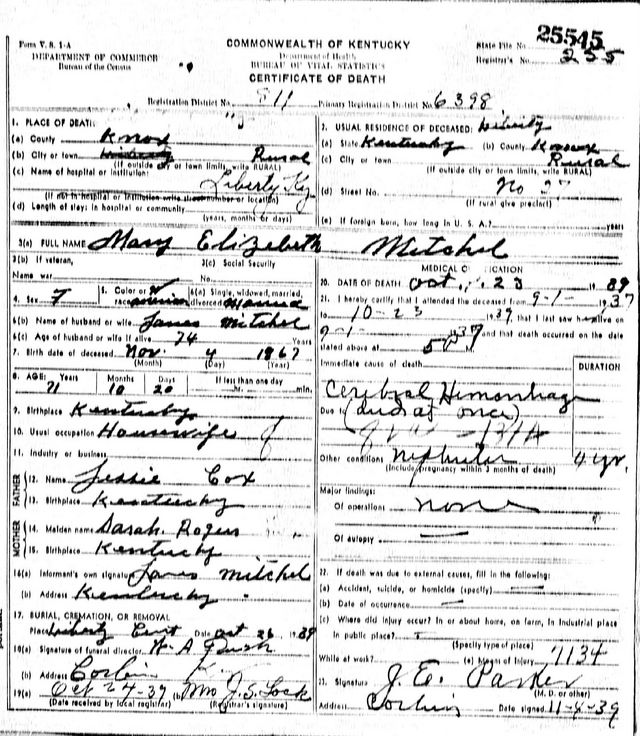 25545
Form V. S. 1-A
COMMONWEALTH OF KENTUCKY
State File No.
DEPARTMENT OF COMMERCE
Department of Health
Registrar's No. 255
Bureau of the Census
BUREAU OF VITAL STATISTICS
CERTIFICATE OF DEATH
Registration District No. 811 Primary Registration District No. 6398
1. PLACE OF DEATH:
(a) County Knox
(b) City or town Rural
(If outside city or town limits, write RURAL)
(c) Name of hospital or institution:
Liberty Ky
(If not in hospital or institution write street number or location)
(d) Length of stay: in hospital or community
(years, months or days)
2. USUAL RESIDENCE OF DECEASED:
(a) State Kentucky (b) County Knox
(c) City or town Rural
(If outside city or town limits, write RURAL)
(d) Street No. No
(If rural give precinct)
(e) If foreign born, how long in U. S. A.? years
3(a) FULL NAME Mary Elizebeth Mitchel
3(b) If veteran, 3(c) Social Security
Name war No.
4. Sex F 5. Color or race W 6(a) Single, widowed, married, divorced Married
6(b) Name of husband or wife James Mitchel
6(c) Age of husband or wife if alive 74 Years
7. Birth date of deceased Nov. 4 1867
(Month) (Day) (Year)
8. AGE: Years Months Days If less than one day
71 10 20 hr. min.
9. Birthplace Kentucky
10. Usual occupation Housewife
11. Industry or business
FATHER
12. Name Jessie Cox
13. Birthplace Kentucky
MOTHER
14. Maiden name Sarah Rogers
15. Birthplace Kentucky
16(a) Informant's own signature James Mitchel
(b) Address Kentucky
17. BURIAL, CREMATION, OR REMOVAL
Place Liberty Date Oct 26 1939
18(a) Signature of funeral director
(b) Address Corbin Ky
19(a) Oct 24-39 (b) Mrs J. S. Lock
(Date received by local registrar) (Registrar's signature)
MEDICAL CERTIFICATION
20. DATE OF DEATH Oct. 23 1939
21. I hereby certify that I attended the deceased from 9-1- 1937
to 10-23 1939, that I last saw her alive on
9-1- and that death occurred on the date
stated above at
Immediate cause of death DURATION
Cerebral Hemorrhage
Due to (died at once)
Other conditions 4 yr.
(Include pregnancy within 3 months of death)
Major findings:
Of operations none
Of autopsy —
22. If death was due to external causes, fill in the following:
(a) Accident, suicide, or homicide (specify) —
(b) Date of occurrence —
(c) Where did injury occur? In or about home, on farm, in industrial place
in public place?
(Specify type of place)
While at work? (e) Means of injury 7134
23. Signature J. E. Parker
(M. D. or other)
Address Corbin Date signed 11-4-39